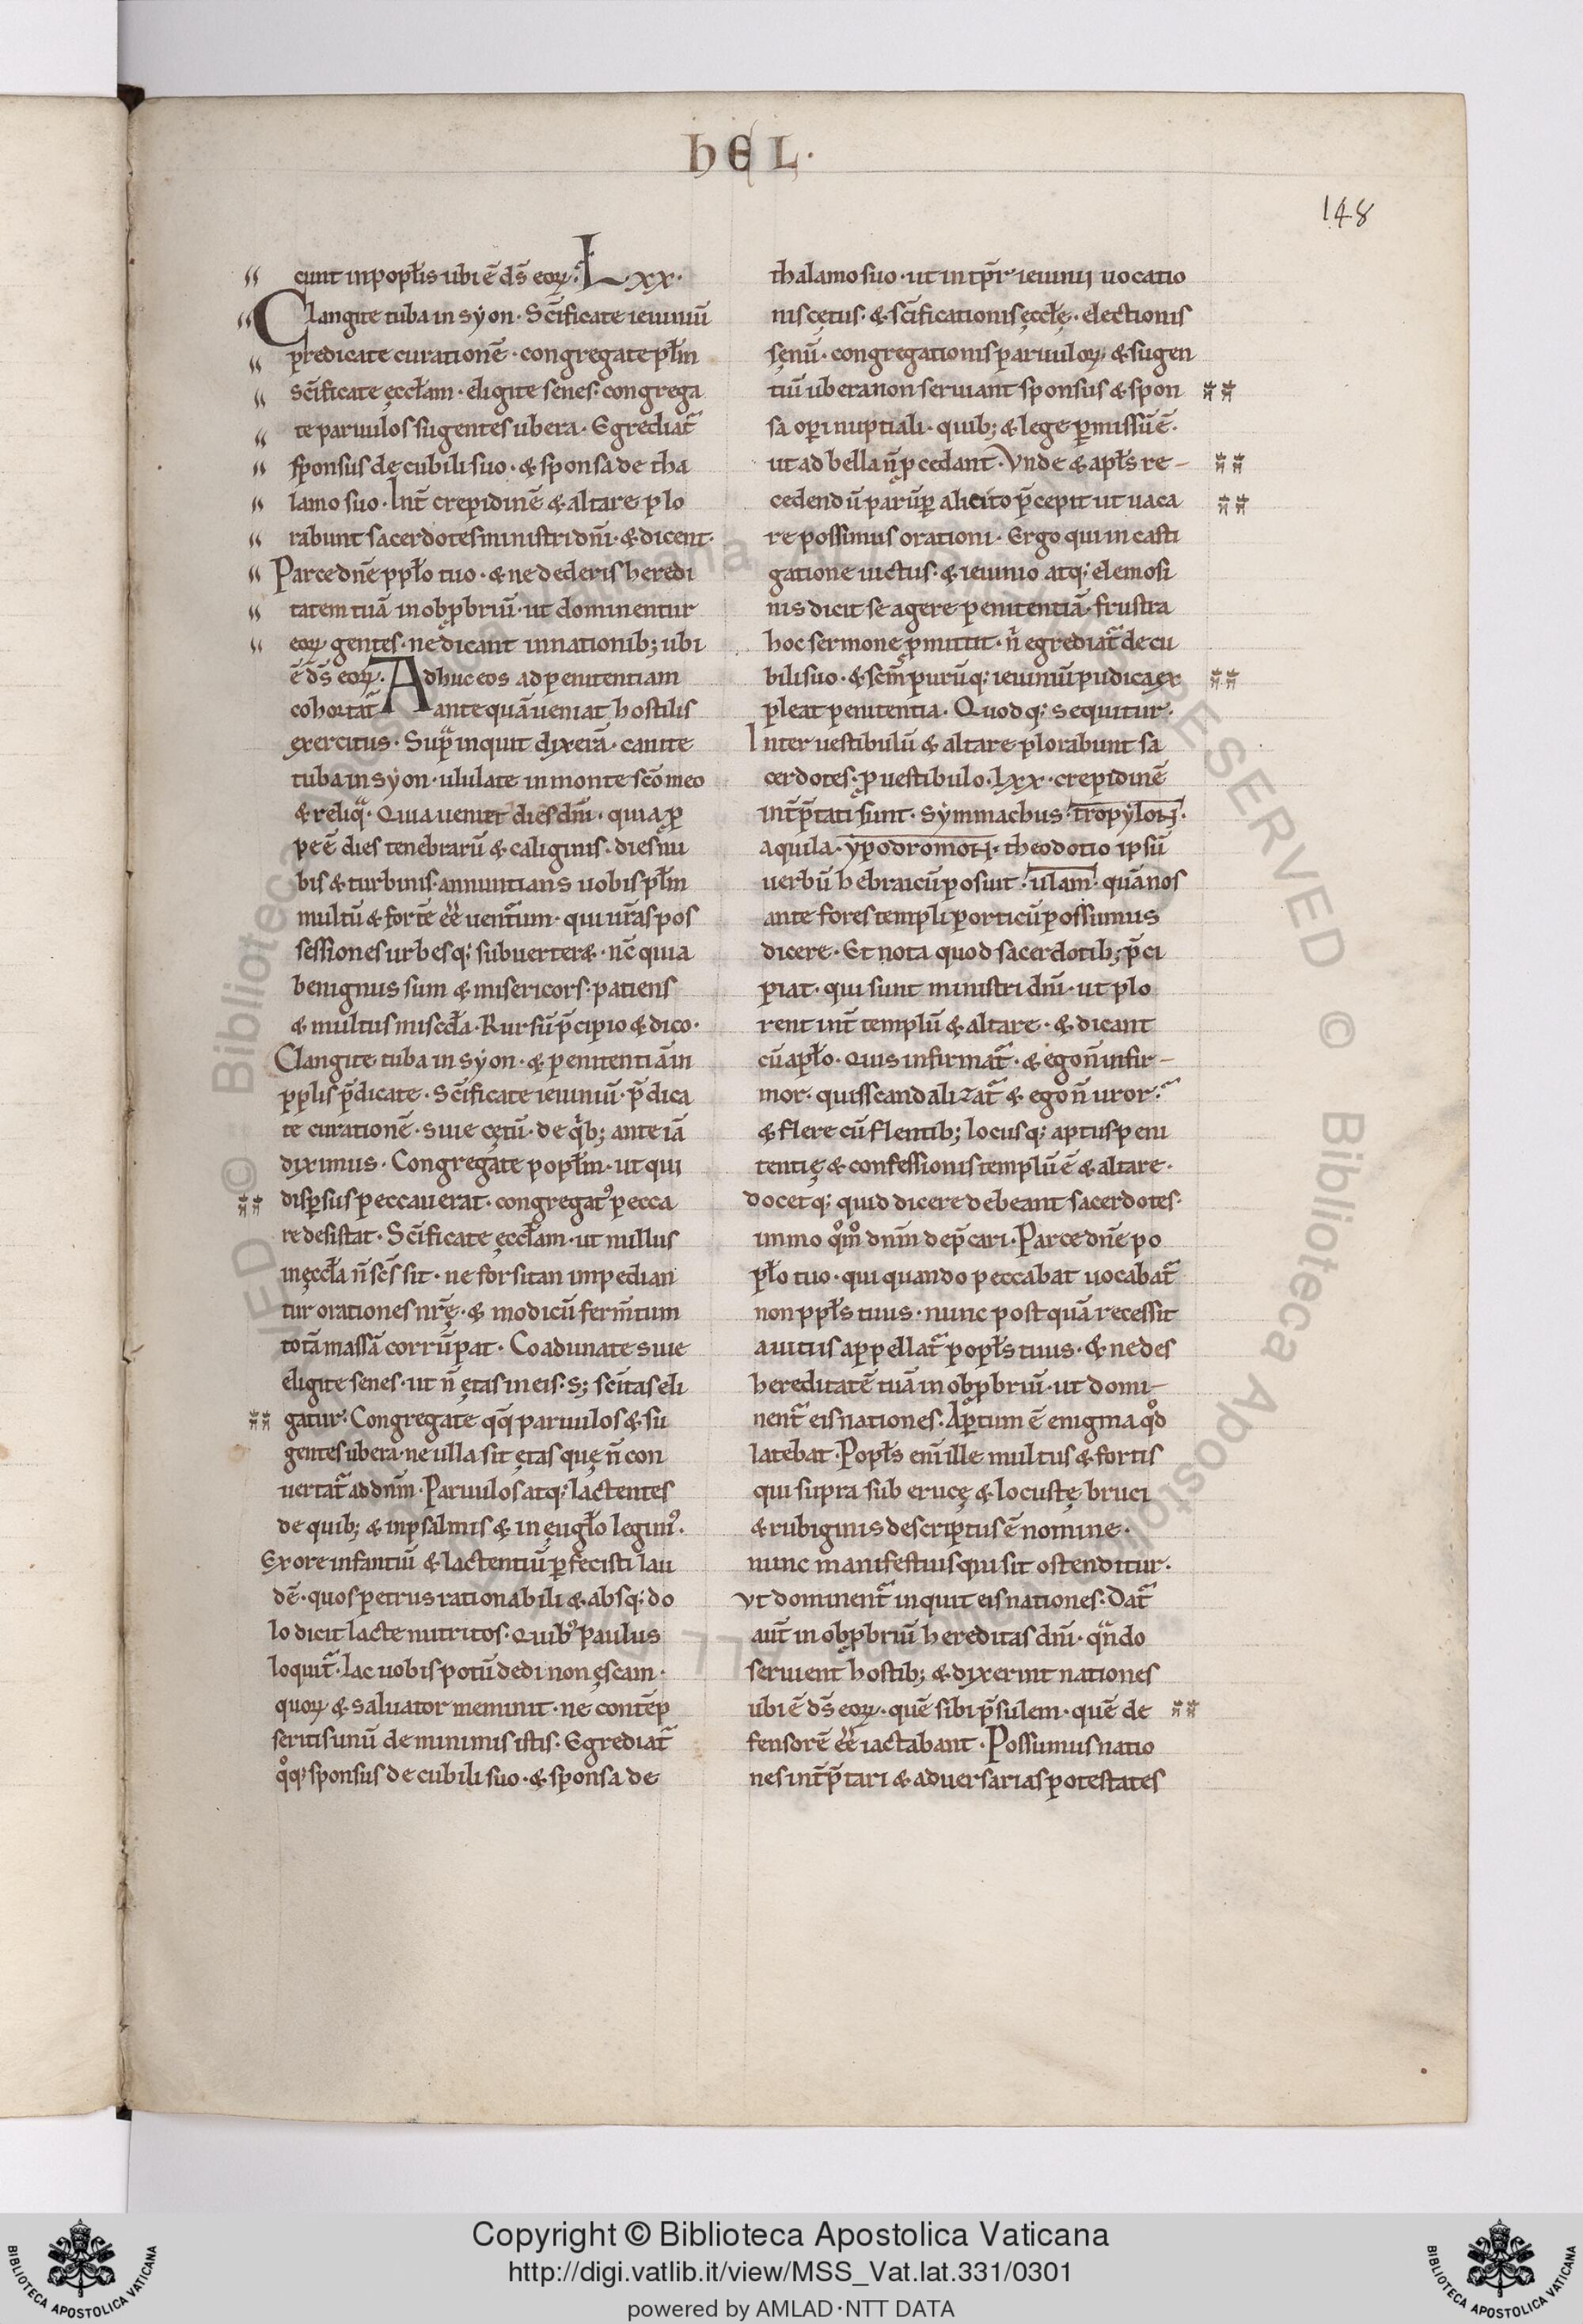 hEL·
148
cunt in popłis ubi ē ds̄ eoꝝ· Lxx·
Clangite tuba in syon· Sc̄ificate ieiuniū
predicate curationē· congregate płm
sc̄ificate ęccłam· eligite senes· congrega
te paruulos sugentes ubera· Egrediat᷑
sponsus de cubili suo· & sponsa de tha
lamo suo· Int̄ crepidinē & altare plo
rabunt sacerdotes ministri dn̄i· & dicent·
Parce dn̄e ppło tuo· & ne dederis heredi
tatem tuā in obꝓbriū· ut dominentur
eoꝝ gentes· ne dicant in nationib; ubi
ē ds̄ eoꝝ· Adhuc eos ad penitentiam
cohortat᷑ ante quā ueniat hostilis
exercitus· Supᷓ inquit dixerā· canite
tuba in syon· ululate in monte sc̄o meo
& reliqᷓ· Quia ueniet dies dn̄i· quia ꝓ
pe ē dies tenebrarū & caliginis· dies nu
bis & turbinis· annuntians uobis płm
multū & fortē eē̄ uenturum· qui ur̄as pos
sessiones urbesq; subuerteret· nc̄ quia
benignus sum & misericors· patiens
& multus miscd̄a· Rursū p̄cipio & dico·
Clangite tuba in syon· & penitentiā in
pplis p̄dicate· Sc̄ificate ieiuniū· p̄dica
te curationē· siue cętū· de qͥb; ante iā
diximus· Congregate popłm· ut qui
disꝑsus peccauerat· congregat᷒ pecca
re desistat· Sc̄ificate ęccłam· ut nullus
in ęccła n̄ sc̄s sit· ne forsitan impedian
tur orationes nr̄ę· & modicū ferm̄tum
totā massā corrūpat· Coadunate siue
eligite senes· ut n̄ ętas in eis· s; sc̄itas eli
gatur· Congregate qͦq; paruulos & su
gentes ubera· ne ulla sit ętas quę n̄ con
uertat᷑ ad dn̄m· Paruulos atq; lactentes
de quib; & in psalmis & in eugło legim᷒·
Ex ore infantiū & lactentiū ꝑfecisti lau
dē· quos petrus rationabili & absq; do
lo dicit lacte nutritos· Quib᷒ paulus
loquit᷑· lac uobis potū dedi non ęscam·
quoꝝ & saluator meminit· ne contēp
seritis unū de minimis istis· Egrediat᷑
qͦq; sponsus de cubili suo· & sponsa de
thalamo suo· ut int̄p̄r ieiunij uocatio
nis cętus· & sc̄ificationis ęccłę· electionis
senū· congregationis paruuloꝝ & sugen
tiū ubera non seruiant sponsus & spon
sa oꝑi nuptiali· quib; & lege ꝑmissū ē·
ut ad bella n̄ ꝓcedant· Vnde & apłs re-
cedendū parūꝑ a licito p̄cepit ut uaca
re possimus orationi· Ergo qui in casti
gatione uictus· & ieiunio atq; elemosi
nis dicit se agere penitentiā· frustra
hoc sermone ꝓmittit· nͥ egrediat᷑ de cu
bili suo· & sc̄m purūq; ieiuniū pudica ex
pleat penitentia· Quodq; sequitur·
Inter uestibulū & altare plorabunt sa
cerdotes· ꝓ uestibulo· lxx· crepidinē
int̄p̄tati sunt· symmachus· tropylon·
aquila· ypodromon· theodotio ipsū
uerbū hebraicū posuit· ulam· quā nos
ante fores templi porticū possumus
dicere· Et nota quod sacerdotib; p̄ci
piat· qui sunt ministri dn̄i· ut plo
rent int̄ templū & altare· & dicant
cū apło· Quis infirmat᷑· & ego n̄ infir-
mor· quis scandalizat᷑ & ego n̄ uror·
& flere cū flentib; locusq; aptus peni
tentię & confessionis templū ē & altare·
Docetq; quid dicere debeant sacerdotes·
immo qͦm̊ dn̄m dep̄cari· Parce dn̄e po
pło tuo· qui quando peccabat uocabat᷑
non ppłs tuus· nunc post quā recessit
a uitiis appellat᷑ popłs tuus· & ne des
hereditatē tuā in obꝓbriū· ut domi-
nent᷑ eis nationes· Aꝑtum ē enigma qͦd
latebat· Popłs eni᷑ ille multus & fortis
qui supra sub erucę & locustę bruci
& rubiginis descriptus ē nomine·
nunc manifestius qui sit ostenditur·
Vt dominent᷑ inquit eis nationes· Dat᷑
aut̄ in obꝓbriū hereditas dn̄i· qᷓndo
seruient hostib; & dixerint nationes
ubi ē ds̄ eoꝝ· quē sibi p̄sulem· quē de
fensorē eē̄ iactabant· Possumus natio
nes int̄p̄tari & aduersarias potestates
Copyright © Biblioteca Apostolica Vaticana
http://digi.vatlib.it/view/MSS_Vat.lat.331/0301
powered by AMLAD·NTT DATA
BIBLIOTECA APOSTOLICA VATICANA
BIBLIOTECA APOSTOLICA VATICANA